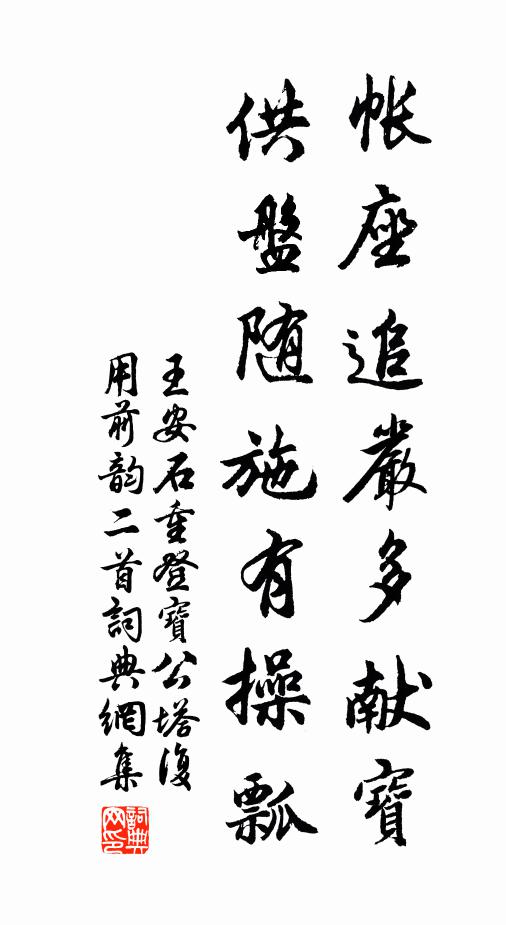 帐座追嚴多献寶
供盤随施有操瓢
王安石重登寶公塔復
用前韵二首詞典網集
詞典网印